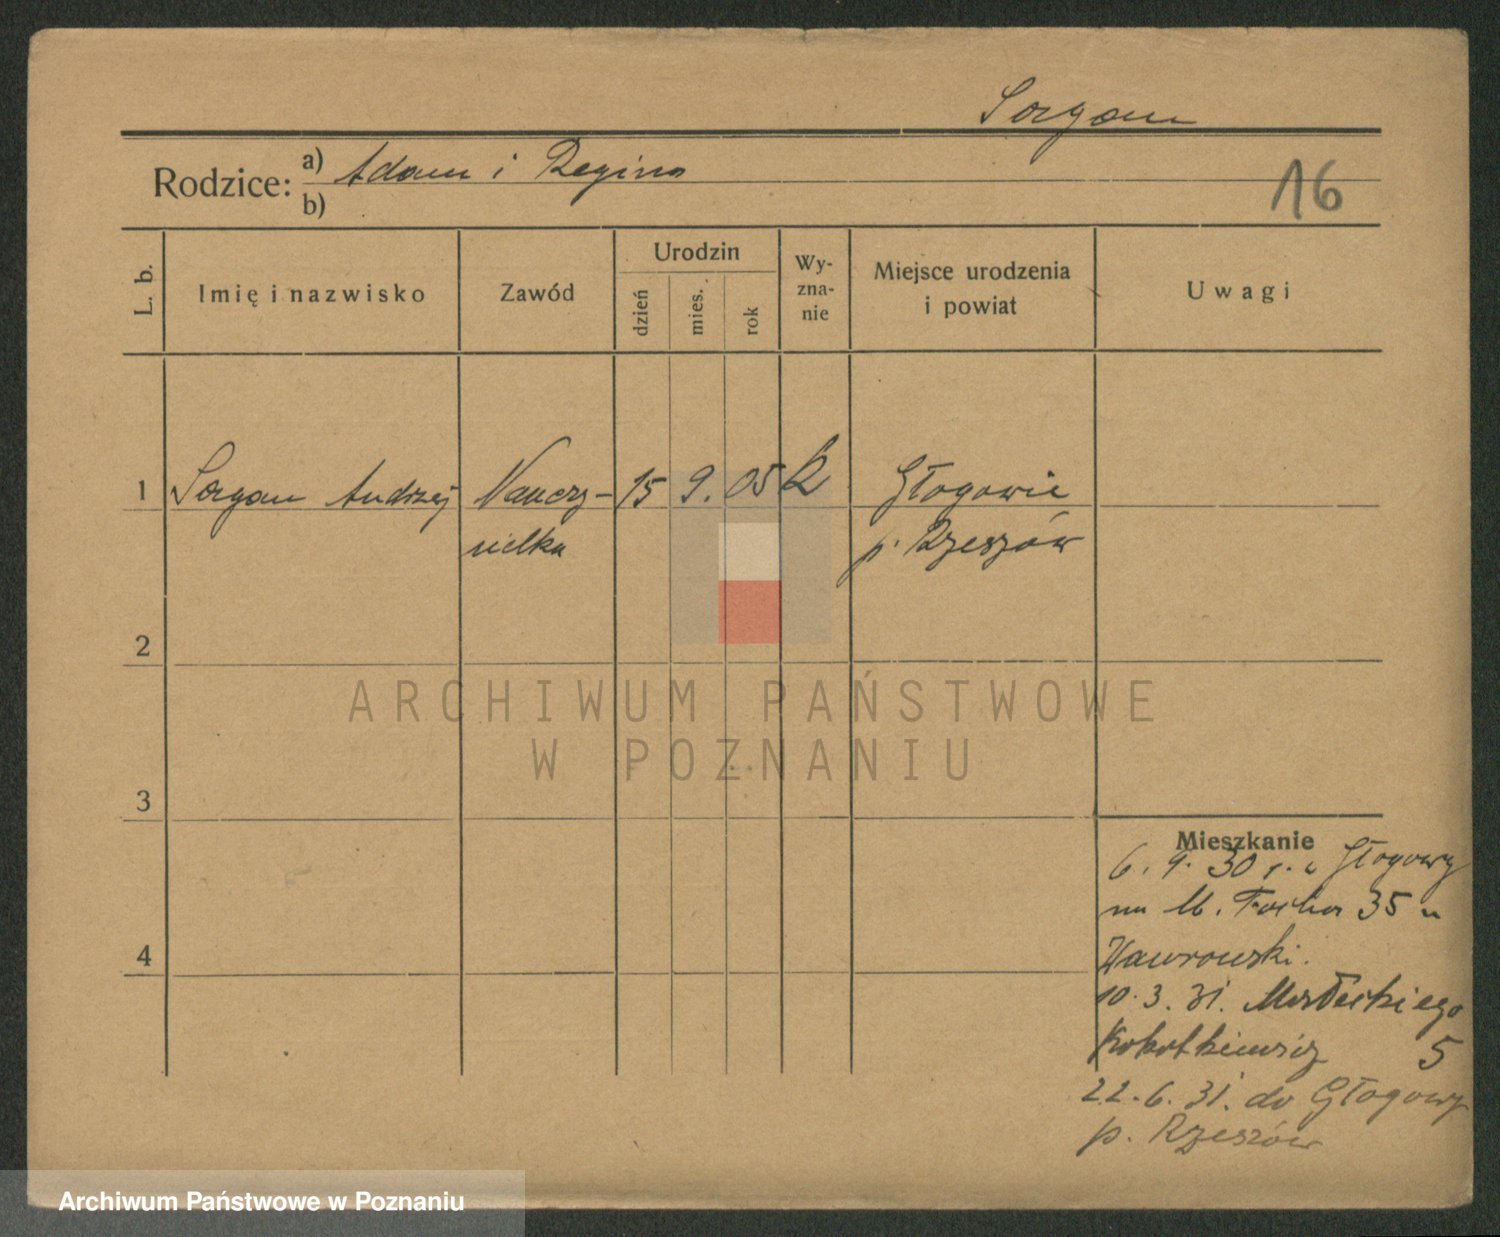 Sorgam
Rodzice: a) Adam i Regina
b)
16
L. b.
Imię i nazwisko
Zawód
Urodzin
dzień
mies.
rok
Wy-
zna-
nie
Miejsce urodzenia
i powiat
Uwagi
1 Sorgam Andrzej Nauczy- 15 9. 05 k Głogowie
cielka p. Rzeszów
2
ARCHIWUM PAŃSTWOWE
W POZNANIU
3
Mieszkanie
6. 9. 30 r. z Głogowy
na M. Focha 35 u
Wawrowski.
10. 3. 31. Małeckiego
Kokotkiewicz 5
4
22. 6. 31. do Głogowy
p. Rzeszów
Archiwum Państwowe w Poznaniu